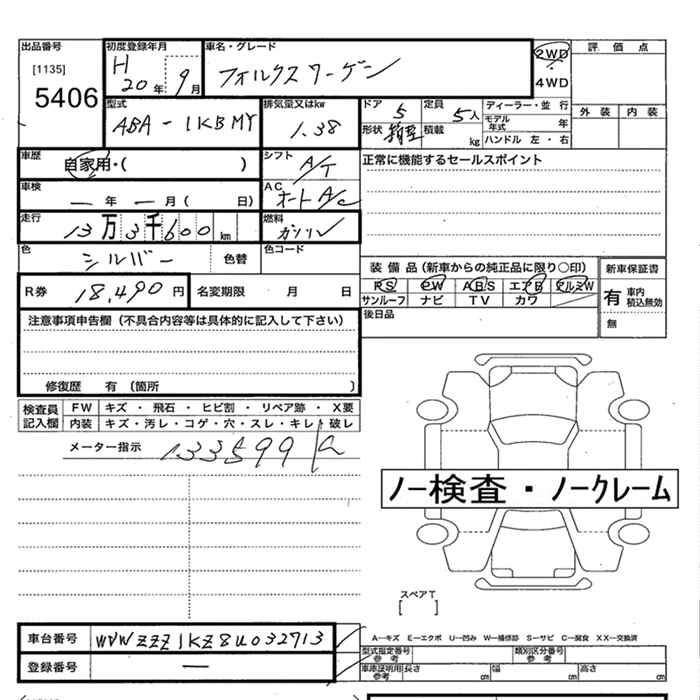 出品番号 初度登録年月 車名・グレード 2WD 評価点
[1135] H 20年 9月 フォルクスワーゲン 4WD
5406 外装 内装
型式 排気量又はkw ドア 5 定員 5人 ディーラー・並行
ABA-1KBMY 1.38 形状 箱型 積載 kg モデル年式 年
ハンドル 左・右
車歴 自家用・( ) シフト A/T 正常に機能するセールスポイント
車検 ー年ー月( 日) AC オートA/C
走行 13万3千600km 燃料 ガソリン
色 シルバー 色替 色コード
装備品(新車からの純正品に限り○印) 新車保証書
R券 18,490円 名変期限 月 日 PS PW ABS エアB アルミW 有 車内積込無効
サンルーフ ナビ TV カワ
注意事項申告欄(不具合内容等は具体的に記入して下さい) 後日品 無
修復歴 有〔箇所 〕
検査員記入欄 FW キズ・飛石・ヒビ割・リペア跡・X要
内装 キズ・汚レ・コゲ・穴・スレ・キレ・破レ
メーター指示 133599
ノー検査・ノークレーム
スペアT
[ ]
車台番号 WVWZZZ1KZ8U032713 A―キズ E―エクボ U―凹み W―補修跡 S―サビ C―腐食 XX―交換済
登録番号 ー 型式指定番号 参考 類別区分番号 参考
車庫証明用参考 長さ cm 幅 cm 高さ cm